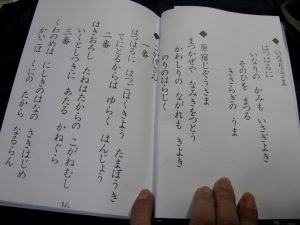 ◆ いなりさま
はつはるに
いなりの かみも いさぎよき
そのひを まつる
きさらぎの うま
◆ 原宿じぞうさま
まつかぜや なみきをつとう
かわしりの ながれも きよき
のりのはらじく
一番
はつはるに はつごはくきよう たまぼうき
てにとるからは ゆらく はんじょう
二番
はきおろし たねはたからの こがねむし
いくとしつきに あたる かねぐら
三番
くわのめは にしきのはなの さきはじめ
かいこは くにの たから なるらん